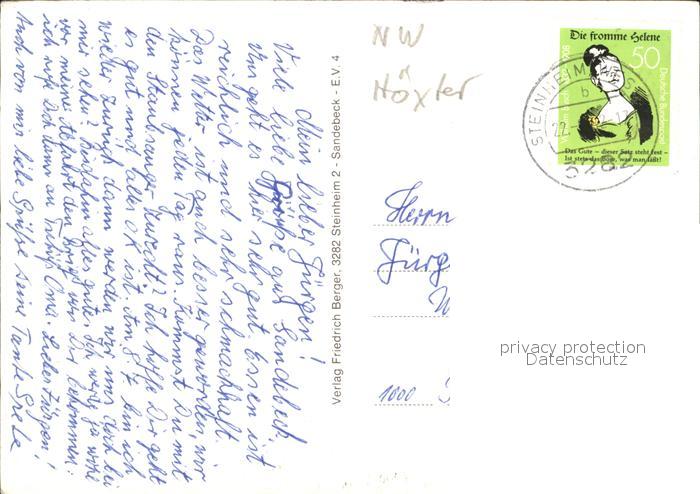 Mein lieber Jürgen!
Viele liebe Grüße aus Sandebeck.
Uns geht es hier sehr gut. Essen ist
reichlich und sehr schmackhaft.
Das Wetter ist auch besser geworden, wir
können jeden Tag raus. Kommst Du mit
den Staubsauger zurecht? Ich hoffe Dir geht
es gut und alles ok ist. Am 8.7. bin ich
wieder zurück dann werden wir uns doch bei
mir sehen? Bis dahin alles gute.
vor meine
ich rufe Dich dann an Tschüß Oma. Lieber Jürgen!
Auch von mir liebe Grüße Deine Tante Grete
Verlag Friedrich Berger, 3282 Steinheim 2 - Sandebeck - E.V. 4
NW
Höxter
Die fromme Helene
50
Deutsche Bundespost
Das Gute – dieser Satz steht fest –
Ist stets das Böse, was man läßt!
STEINHEIM
b
3282
Herrn
Jürg
1000
privacy protection
Datenschutz